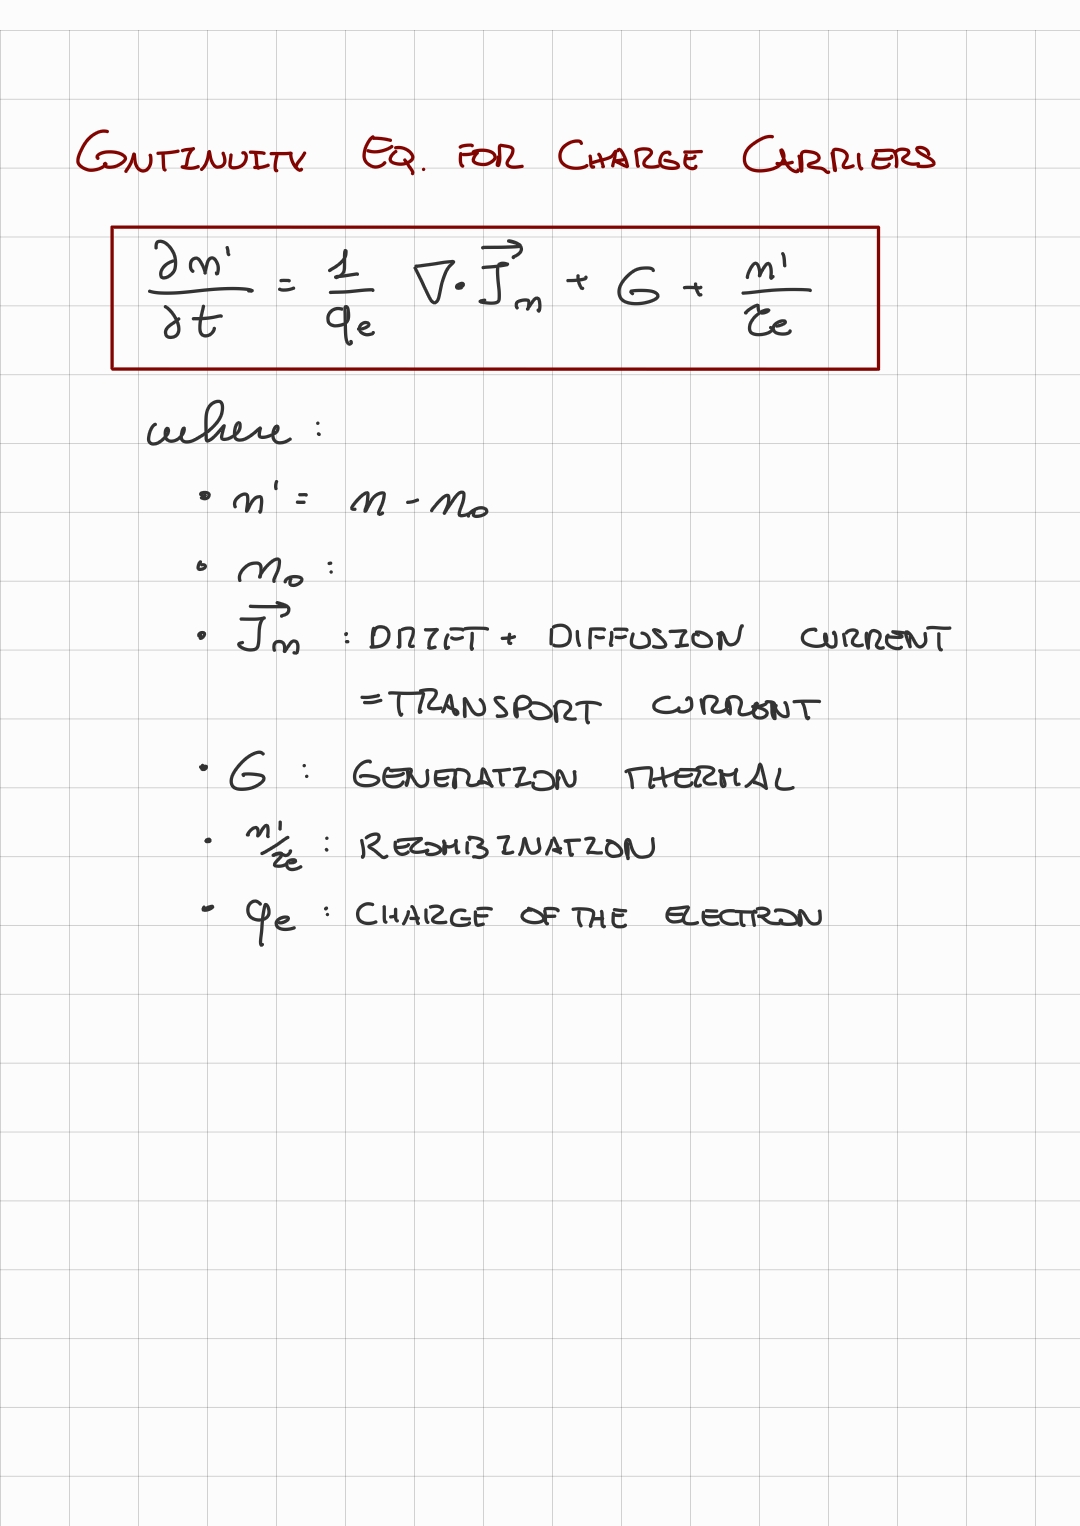 CONTINUITY EQ. FOR CHARGE CARRIERS
∂n'/∂t = 1/qe ∇·J⃗n + G + n'/τe
where :
• n' = n - n₀
• n₀ :
• J⃗n : DRIFT + DIFFUSION CURRENT
= TRANSPORT CURRENT
• G : GENERATION THERMAL
• n'/τe : RECOMBINATION
• qe : CHARGE OF THE ELECTRON